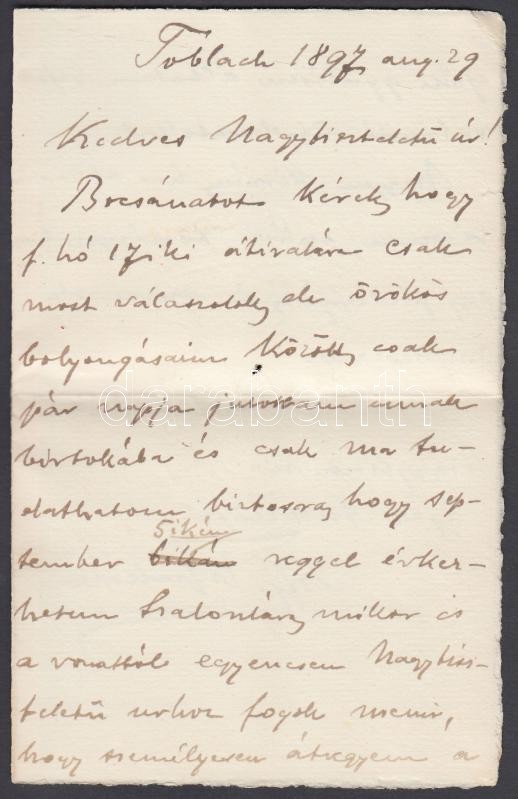 Toblach 1897, aug. 29
Kedves Nagytiszteletű úr!
Bocsánatot kérek, hogy
f. hó 17iki átiratára csak
most válaszolok, de örökös
bolyongásaim között, csak
pár napja jutottam annak
birtokába és csak ma tu-
dathatom biztosra, hogy sep-
5ikén
tember reggel érkez-
hetem Szalontára, mikor is
a vonattól egyenesen Nagytisz-
teletű urhoz fogok menni,
hogy személyesen átvegyem a
darabanth